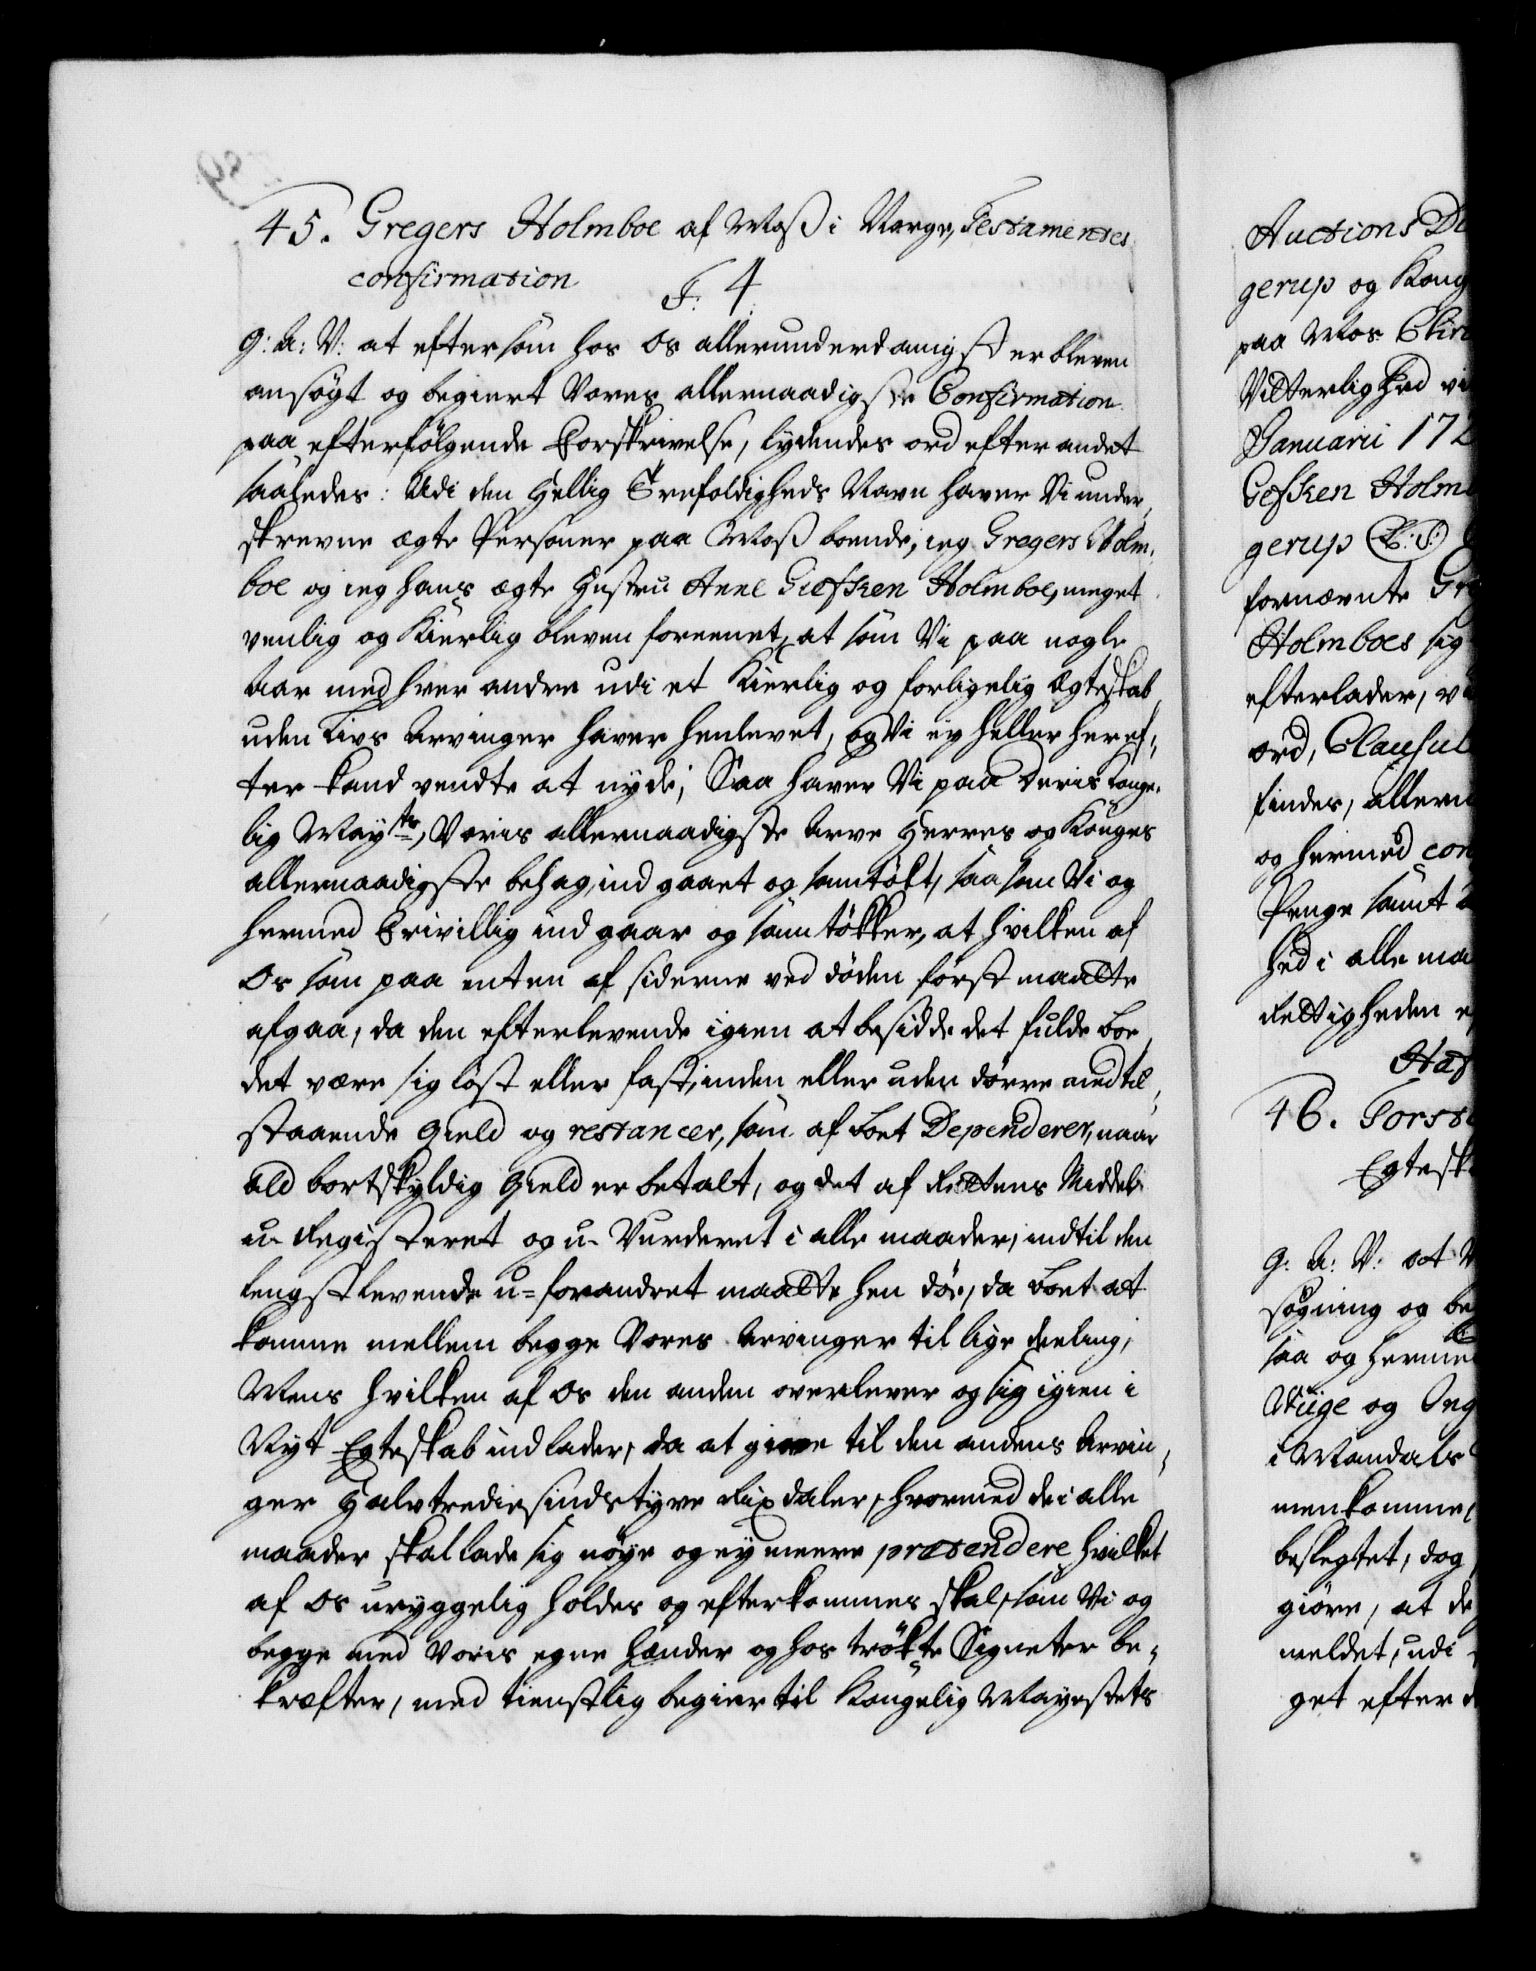 45. Gregers Holmboe af Moss i Norge, Testamentes
confirmation
F. 4
G: A: V: at eftersom hos Os allerunderdanigst er bleven
ansøgt og begiert Vores allernaadigste Confirmation
paa efterfølgende Forskrivelse, lydendes ord efter andet
saaledes: Udi den Hellig Trefoldigheds Navn haver Vi under-
skrevne ægte Personer paa Moss boende, jeg Gregers Holm-
boe og jeg hans ægte Hustru Anne Giefken Holmboe, meget
venlig og Kierlig bleven foreenet, at som Vi paa nogle
Aar med hver andre udi et Kierlig og forligelig Ægteskab
uden Livs Arvinger haver henlevet, og Vi ey heller heref-
ter kand vendte at nyde; Saa haver Vi paa Deris Konge-
lig Mayts, Voris allernaadigste Arve Herres og Konges
allernaadigste behag, ind gaaet og samtøkt, saa som Vi og
hermed Frivillig ind gaar og samtøkker, at hvilken af
Os som paa enten af siderne ved døden først maatte
afgaa, da den efterlevende igien at besidde det fulde Boe
det være sig løst eller fast, inden eller uden dørre med til-
staaende Gield og restancer, som af Boet Dependerer, naar
ald bortskyldig Gield er betalt, og det af Rettens Middel
u-Registeret og u-Vurderet i alle maader, indtil den
lengst levende u-forandret maatte hen døe, da Boet at
komme mellem begge Vores Arvinger til lige deeling;
Mens hvilken af Os den anden overlever og sig igien i
Nyt Egteskab indlader, da at give til den andens Arvin-
ger Halvtrediesindstyve Rixdaler, hvormed de i alle
maader skal lade sig nøye og ey meere prætendere hvilket
af Os uryggelig holdes og efterkommes skal, som Vi og
begge med Voris egne Hænder og hos trøkte Signeter be-
kræfter, med tienstlig begier til Kongelig Mayestets
Auctions Di
gerup og Kong
paa Mos
Vitterlighed vi
Januarii 172
Gefken Holm
gerup (L.S.)
fornævnte Gre
Holmboes sig
efterlader, v
ord, Clausul
findes, allern
og hermed con
Penge samt
hed i alle ma
Rettigheden e
Haf
46. Torst
Egtesk
G: A: V: at V
søgning og be
saa og herme
og Ing
i Mandals
menkomme,
beslegtet, dog
giøre, at de
meldet, udi
get efter d